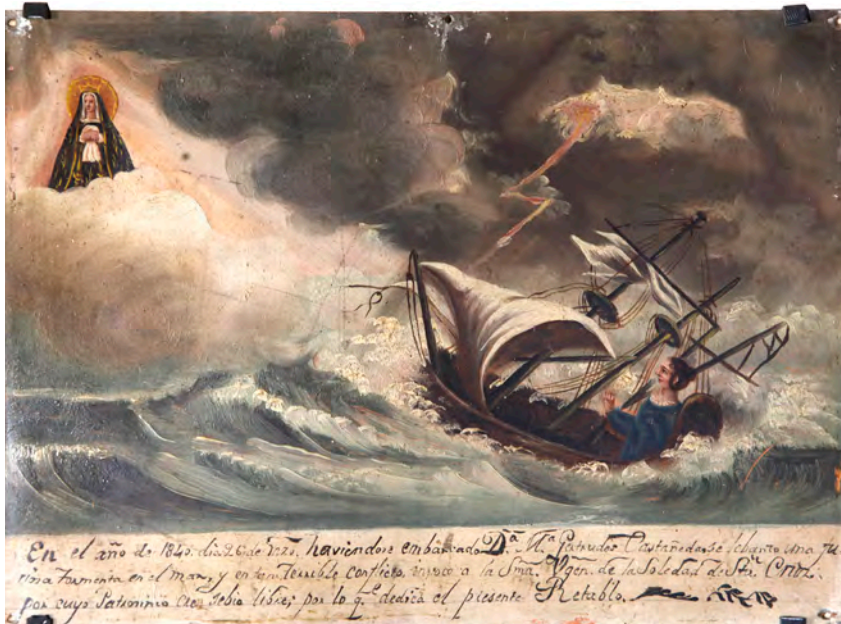 En el año de 1840. dia 26 de haviendose embarcado Dª. Mª. Gertrudes Castañeda, se lebanto una fu
riosa tormenta en el mar, y en tan terrible conflicto, invoco a la Sma. Vgen. de la Soledad de Sta. Cruz.
por cuyo Patrocinio se vio libre; por lo q.e dedica el presente Retablo.